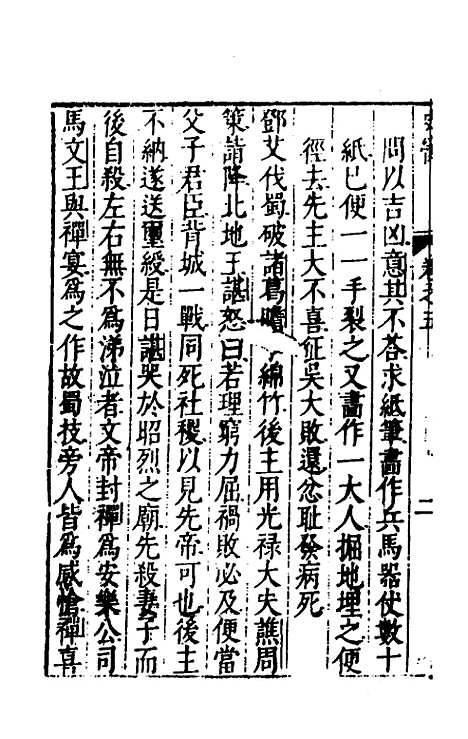 問以吉凶意其不荅求紙筆畵作兵馬器仗數十
紙巳便一一手裂之又畵作一大人掘地埋之便
徑去先主大不喜征吳大敗還忿耻發病死
鄧艾伐蜀破諸葛瞻綿竹後主用光禄大夫譙周
策請降北地王諶怒曰若理窮力屈禍敗必及便當
父子君臣背城一戰同死社稷以見先帝可也後主
不納遂送璽綬是日諶哭於昭烈之廟先殺妻子而
後自殺左右無不爲涕泣者文帝封禪爲安樂公司
馬文王與禪宴爲之作故蜀技旁人皆爲感愴禪喜
卷之五
二